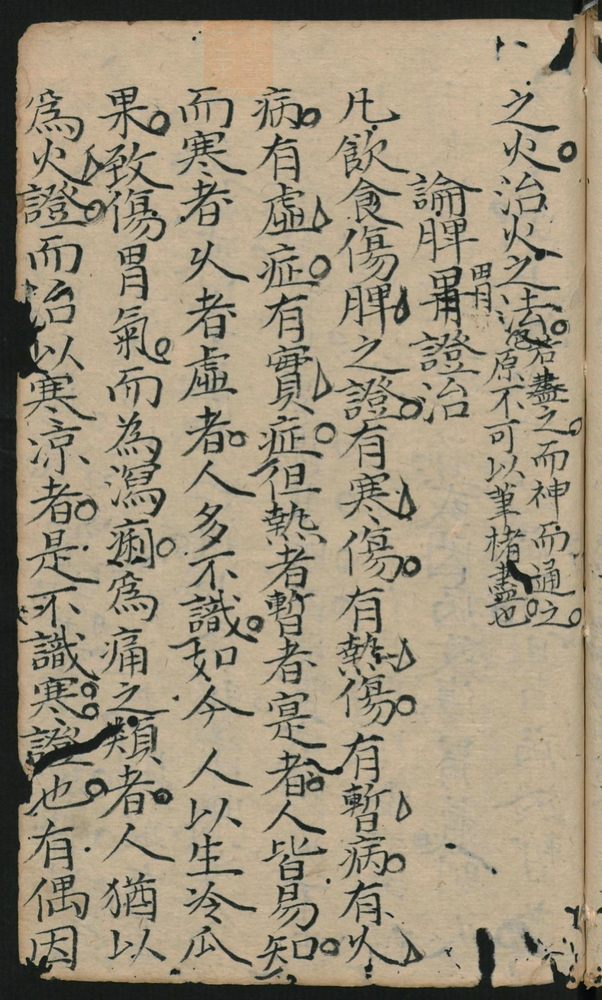 之火治火之法若盡之而神而通之
原不可以筆楮盡也
論脾胃證治
胃
凡飲食傷脾之證有寒傷有熱傷有暫病有久
病有虛症有實症但熱者暫者寔者人皆易知
而寒者久者虛者人多不識如今人以生冷瓜
果致傷胃氣而為瀉痢為痛之類者人猶以
為火證而治以寒凉者是不識寒證也有偶因